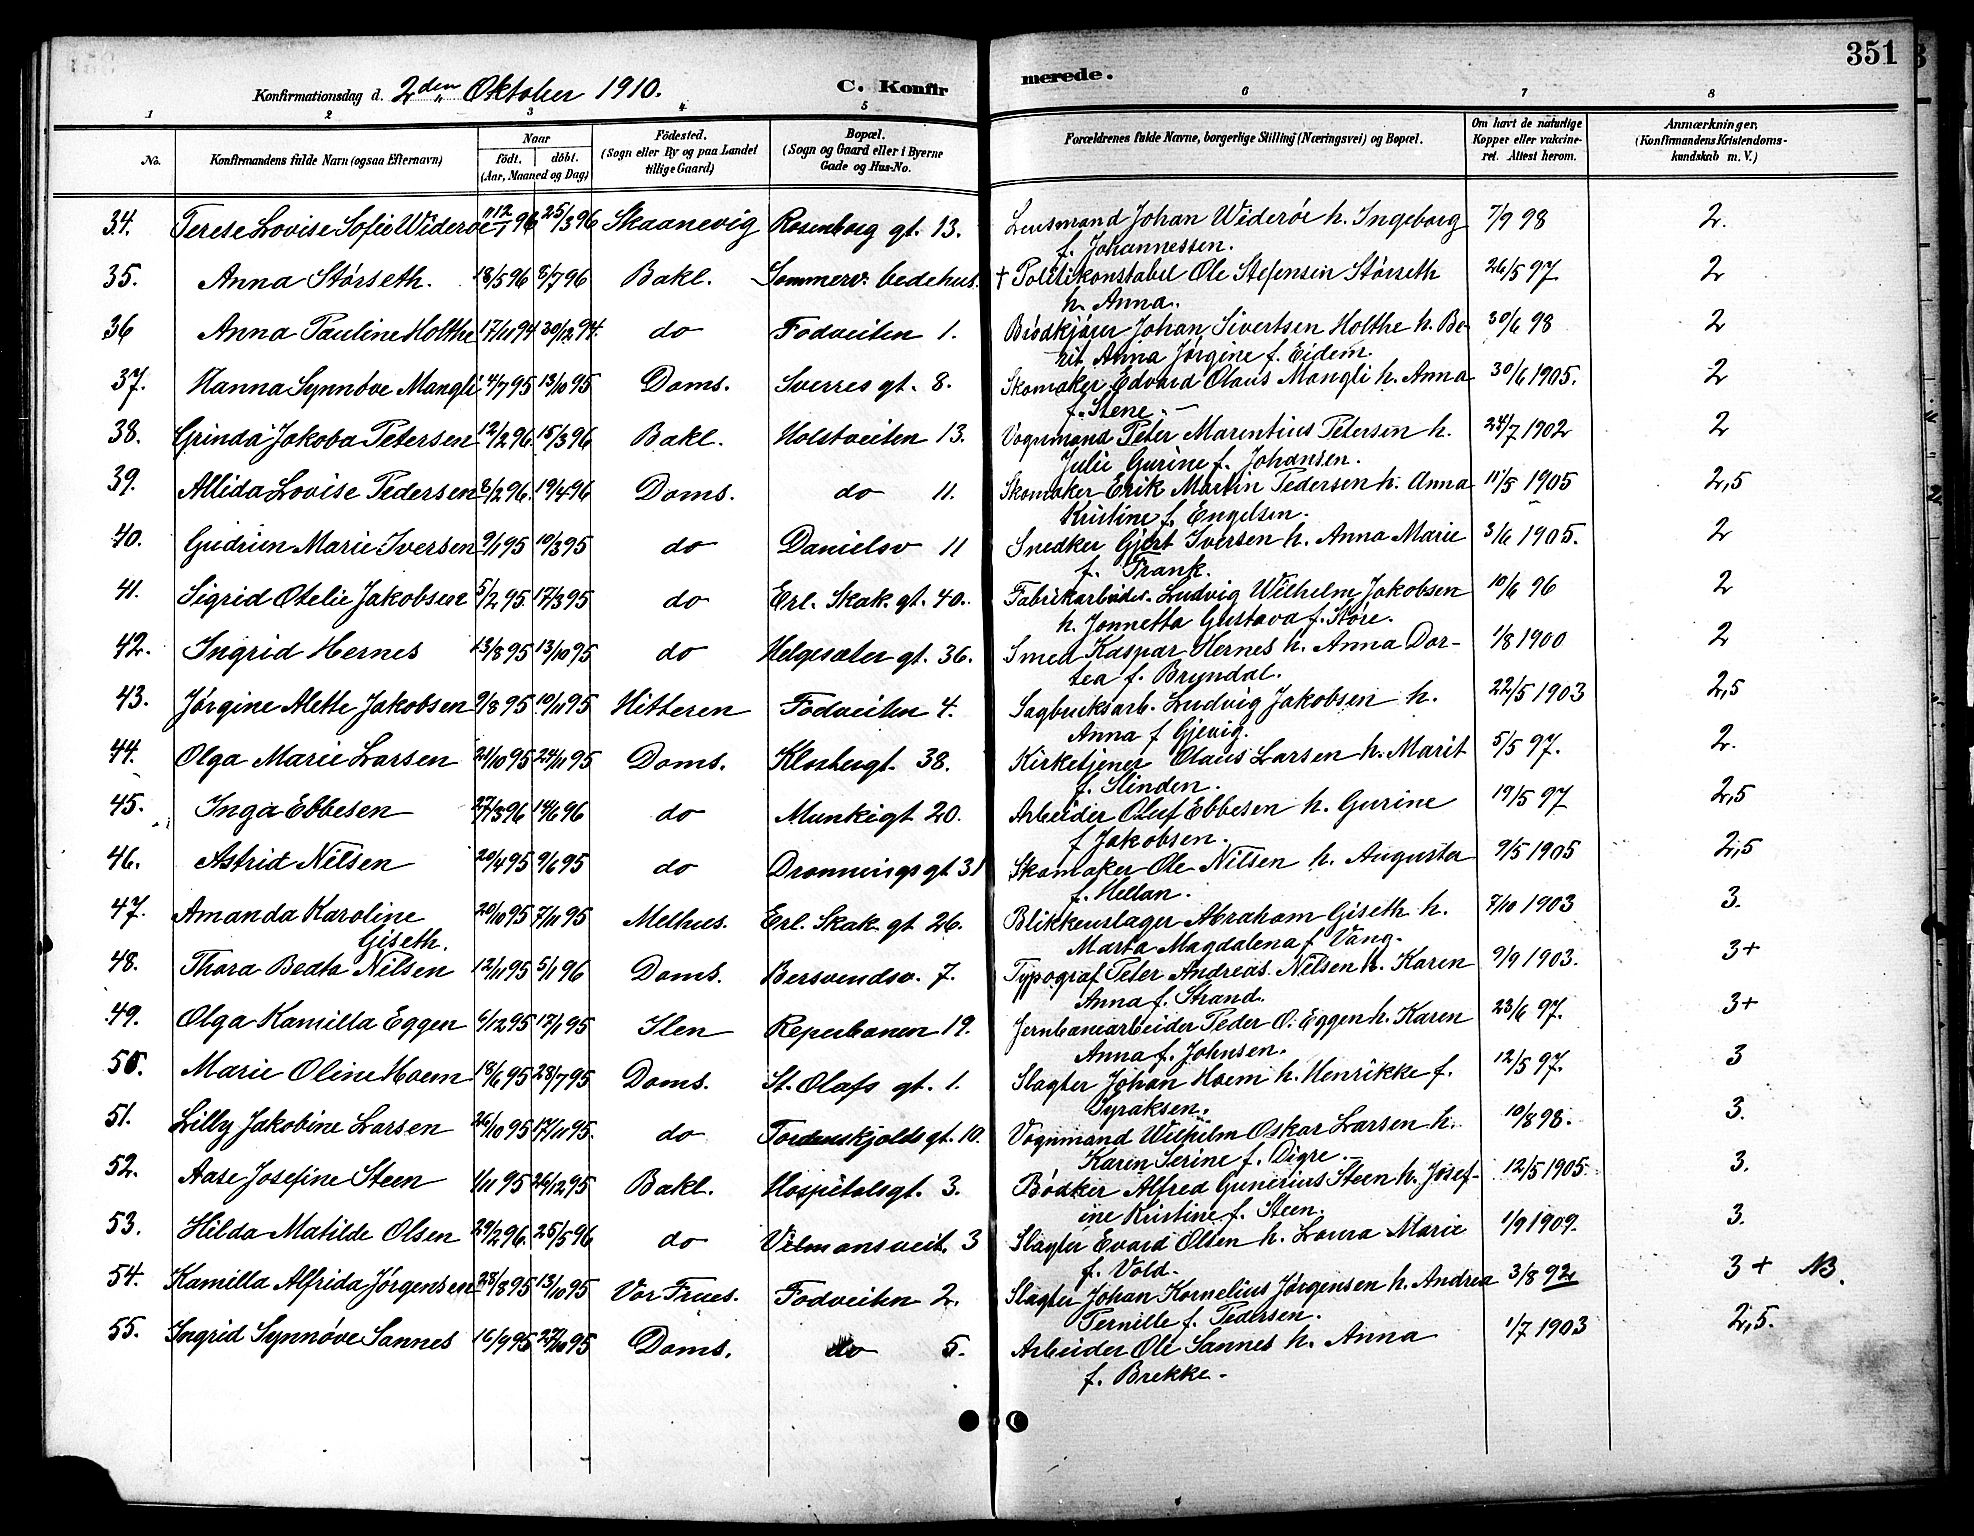 351
Konfirmationsdag d. 2den Oktober 1910. C. Konfirmerede.
1 2 3 4 5 6 7 8
No. Konfirmandens fulde Navn (ogsaa Efternavn) Naar født. døbt. (Aar, Maaned og Dag) Fødested. (Sogn eller By og paa Landet tillige Gaard) Bopæl. (Sogn og Gaard eller i Byerne Gade og Hus-No. Forældrenes fulde Navne, borgerlige Stilling (Næringsvei) og Bopæl. Om havt de naturlige Kopper eller vakcineret. Attest herom. Anmærkninger, (Konfirmandens Kristendomskundskab m. V.)
34. Terese Lovise Sofie Widerøe 11/12 96 25/3 96 Skaanevig Rosenborg gt. 13. Lensmand Johan Widerøe h. Ingeborg 7/9 98 2.
f. Johannessen.
35. Anna Størseth. 18/5 96 5/7 96 Bakl. Sommerv. bedehus. + Politikonstabel Ole Stefensen Størseth 26/5 97 2
h. Anna.
36 Anna Pauline Holthe 17/11 94 30/12 94. do Fodveiten 1. Brødkjører Johan Sivertsen Holthe h. Be- 30/6 98 2
rit Anna Jørgine f. Eidem.
37. Hanna Synnøve Mangli 4/7 95 13/10 95 Doms. Sverres gt. 8. Skomaker Edvard Olaus Mangli h. Anna 30/6 1905. 2
f. Stene. —
38. Grinda Jakoba Petersen 12/2 96. 15/3 96 Bakl. Holstveiten 13. Vognmand Peter Marentius Petersen h. 24/7 1902 2
Julie Gurine f. Johansen.
39. Allida Lovise Pedersen 8/2 96. 19/4 96 Doms. do 11. Skomaker Erik Martin Pedersen h. Anna 11/5 1905 2,5
Kristine f. Engelsen.
40. Gudrun Marie Iversen 9/1 95 10/3 95 do Danielsv 11 Snedker Gjert Iversen h. Anna Marie 3/6 1905. 2
f. Frank.
41. Sigrid Otelie Jakobsen 5/2 95. 17/3 95 do Erl. Skak. gt. 40. Fabrikarbeider. Ludvig Wilhelm Jakobsen 10/6 96 2
h. Jonnetta Gustava f. Støre.
42. Ingrid Hernes 23/8 95 13/10 95 do Helgesæter gt. 36. Smed Kaspar Hernes h. Anna Dor- 1/8 1900 2
tea f. Bryndal.
43. Jørgine Alette Jakobsen 9/8 95 10/11 95 Hitteren Fodveiten 4. Sagbruksarb. Ludvig Jakobsen h. 22/5 1903 2,5
Anna f Gjevig.
44. Olga Marie Larsen 21/10 95 24/11 95 Doms. Klostergt. 38. Kirketjener Olaus Larsen h. Marit 5/5 97. 2.
f. Slinden.
45. Inga Ebbesen 27/3 96 14/6 96 do Munkegt 20. Arbeider Oluf Ebbesen h. Gurine 19/5 97 2,5
f Jakobsen.
46. Astrid Nilsen 20/4 95 9/6 95 do Dronningsgt 31 Skomaker Ole Nilsen h. Augusta 9/5 1905 2,5
f. Hellan.
47. Amanda Karoline 20/10 95 7/11 95 Melhus. Erl. Skak. gt 26. Blikkenslager Abraham Giseth h. 7/10 1903 3.
Giseth. Marta Magdalena f Vang.
48. Thora Beata Nilsen 12/11 95 5/1 96 Doms. Bersvendsv. 7. Typograf Peter Andreas Nilsen h. Karen 9/9 1903. 3+
Anna f. Strand.
49. Olga Kamilla Eggen 6/12 95 17/1 95 Ilen Reperbanen 19. Jernbanearbeider Peder O. Eggen h. Karen 23/6 97. 3+
Anna f. Johnsen.
50. Marie Oline Hoem 18/6 95 28/7 95 Doms. St. Olafs gt. 1. Slagter Johan Hoem h. Henrikke f. 12/5 97. 3
Syraksen.
51. Lilly Jakobine Larsen 26/10 95 17/11 95. do Tordenskjolds gt. 10. Vognmand Wilhelm Oskar Larsen h. 10/8 98. 3.
Karen Serine f. Digre.
52. Aase Josefine Steen 1/11 95 26/12 95 Bakl. Hospitalsgt. 3. Bødker Alfred Gunerius Steen h. Josef- 12/5 1905. 3.
ine Kristine f. Steen.
53. Hilda Matilde Olsen 29/2 96. 25/5 96 do Vilmansveit. 3 Slagter Evard Olsen h. Laura Marie 1/9 1909. 3.
f. Vold.
54. Kamilla Alfrida Jørgensen 28/8 95 13/10 95 Vor Frues. Fodveiten 2. Slagter Johan Kornelius Jørgensen h. Andrea 3/8 92 3+ NB.
Pernille f. Pedersen.
55. Ingrid Synnøve Sannes 16/9 95 27/10 95 Doms. do 5. Arbeider Ole Sannes h. Anna 1/7 1903 2,5.
f. Brekke.